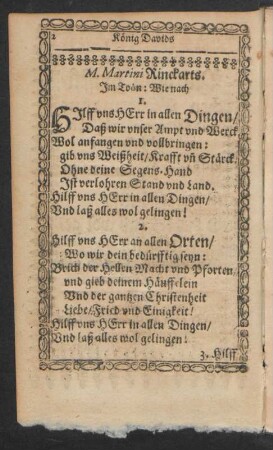 2 König Davids
M. Martini Rinckarts.
Im Toān: Wie nach
1.
HIlff vns HErr in allen Dingen/
Daß wir vnser Ampt vnd Werck
Wol anfangen vnd vollbringen:
gib vns Weißheit/Krafft vñ Stärck.
Ohne deine Segens-Hand
Ist verlohren Stand vnd Land.
Hilff vns HErr in allen Dingen/
Vnd laß alles wol gelingen!
2.
Hilff vns HErr an allen Orten/
Wo wir dein bedürfftig seyn:
Brich der Hellen Macht vnd Pforten
vnd gieb deinem Häuffelein
Vnd der gantzen Christenheit
Liebe/Fried vnd Einigkeit!
Hilff vns HErr in allen Dingen/
Vnd laß alles wol gelingen!
3. Hilff